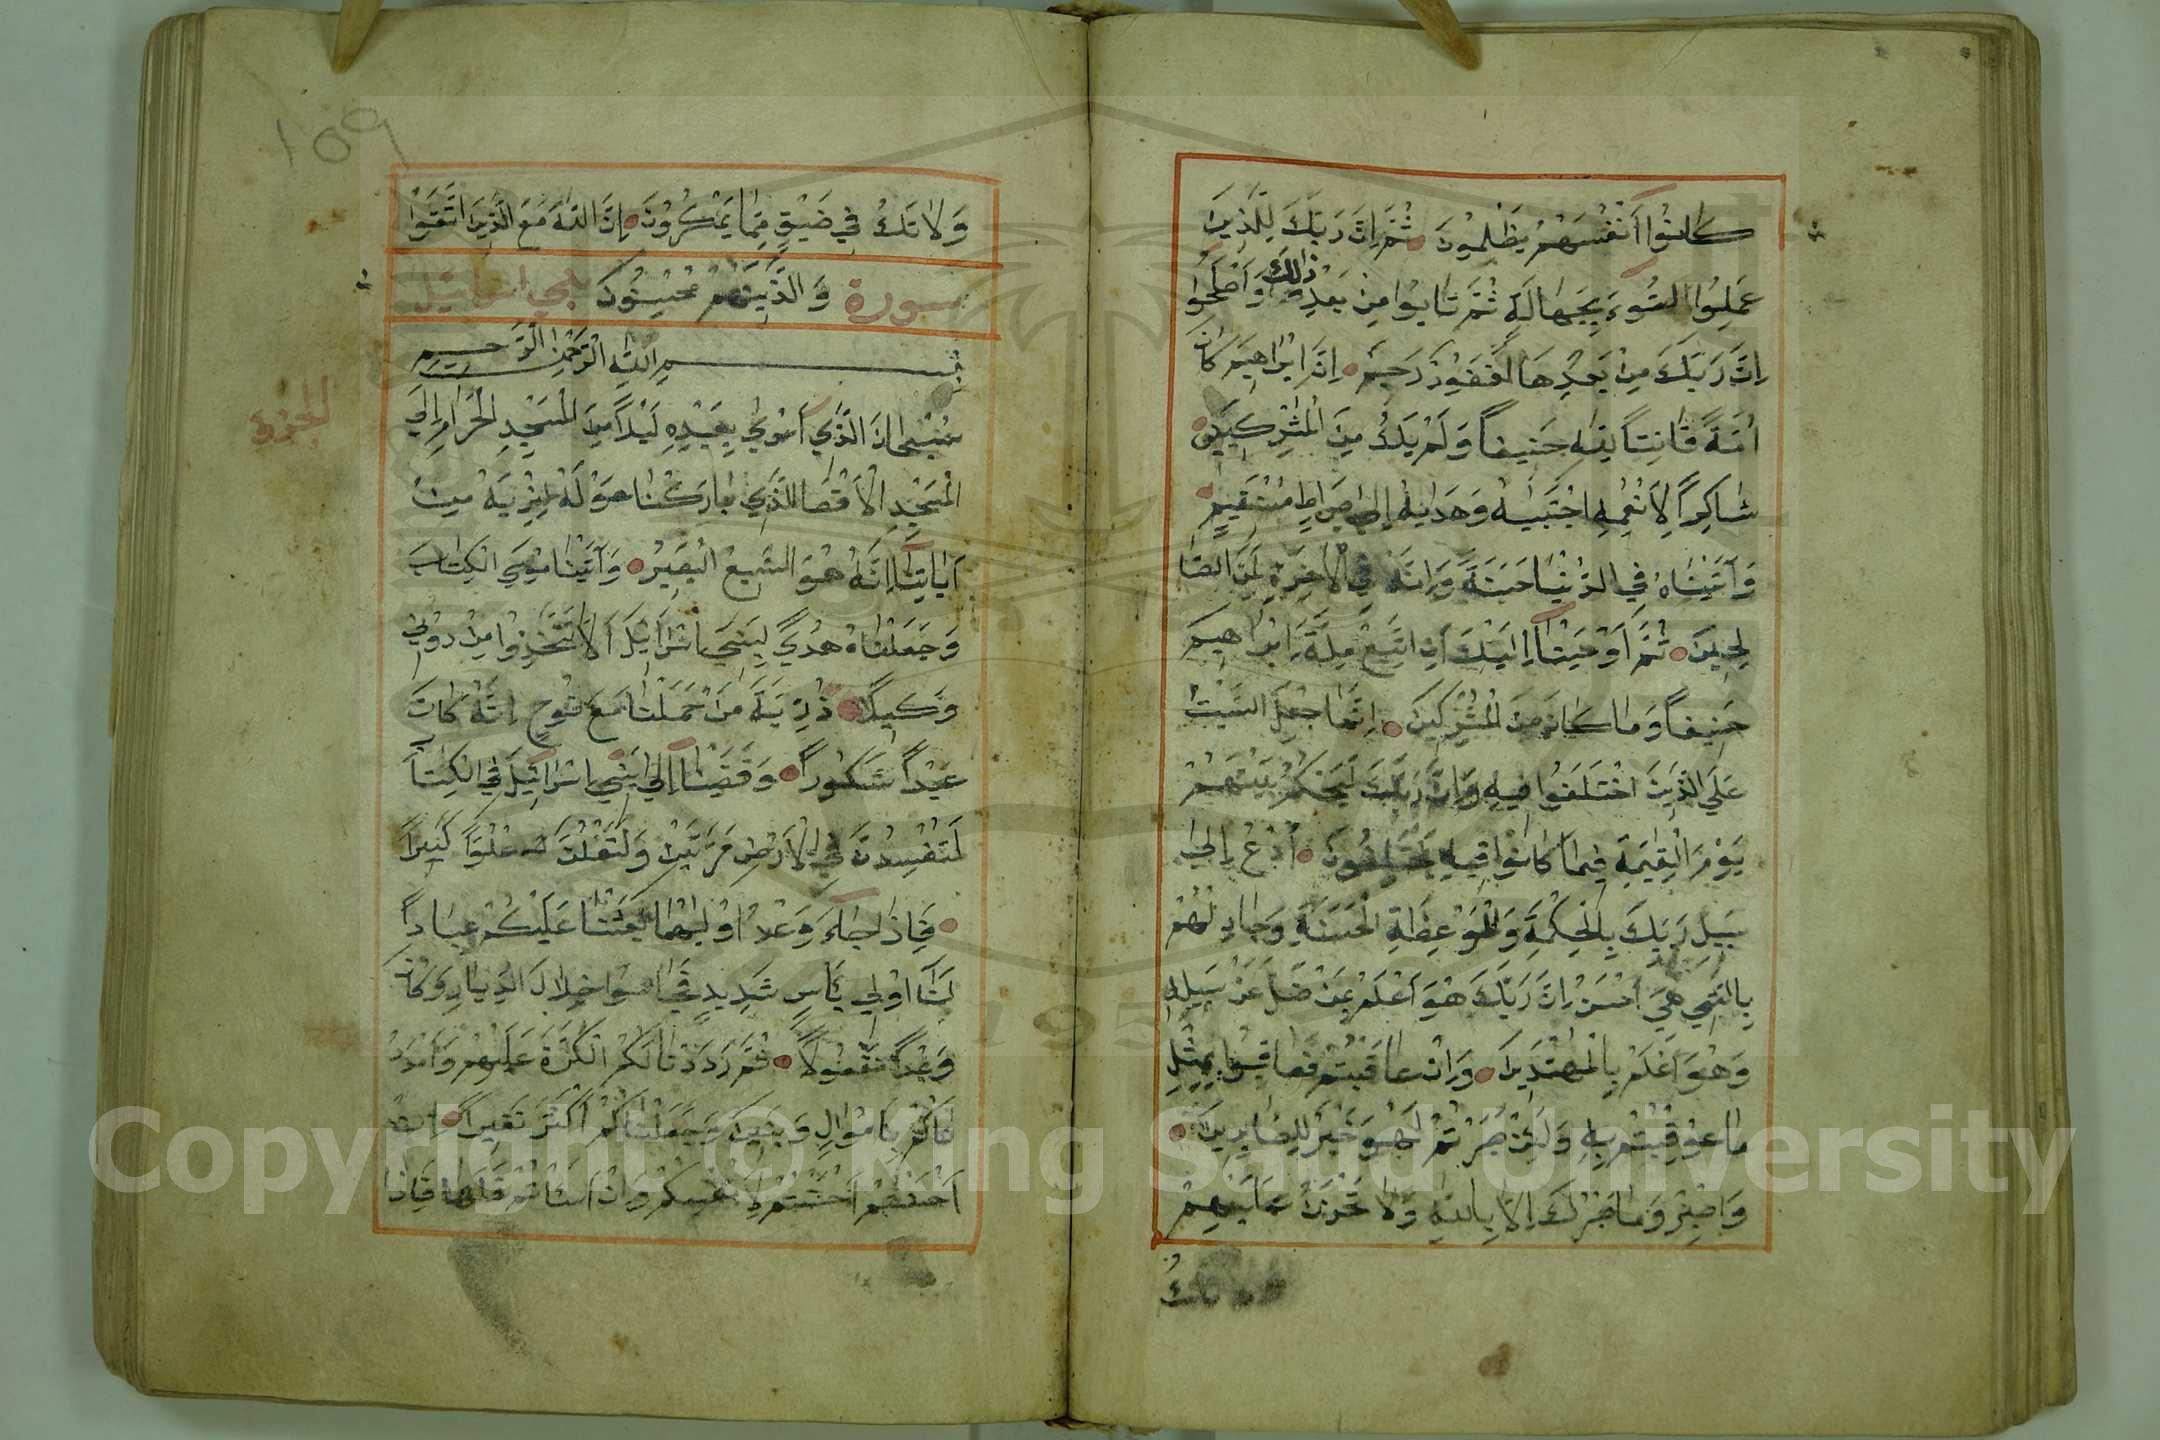 كَانُوا أَنْفُسَهُمْ يَظْلِمُونَ ثُمَّ إِنَّ رَبَّكَ لِلَّذِينَ
عَمِلُوا السُّوءَ بِجَهَالَةٍ ثُمَّ تَابُوا مِنْ بَعْدِ ذَلِكَ وَأَصْلَحُوا
إِنَّ رَبَّكَ مِنْ بَعْدِهَا لَغَفُورٌ رَحِيمٌ إِنَّ إِبْرَاهِيمَ كَانَ
أُمَّةً قَانِتًا لِلَّهِ حَنِيفًا وَلَمْ يَكُ مِنَ الْمُشْرِكِينَ
شَاكِرًا لِأَنْعُمِهِ اجْتَبَيهُ وَهَدَيهُ إِلَى صِرَاطٍ مُسْتَقِيمٍ
وَآتَيْنَاهُ فِي الدُّنْيَا حَسَنَةً وَإِنَّهُ فِي الْآخِرَةِ لَمِنَ الصَّا
لِحِينَ ثُمَّ أَوْحَيْنَا إِلَيْكَ أَنِ اتَّبِعْ مِلَّةَ إِبْرَاهِيمَ
حَنِيفًا وَمَا كَانَ مِنَ الْمُشْرِكِينَ إِنَّمَا جُعِلَ السَّبْتُ
عَلَى الَّذِينَ اخْتَلَفُوا فِيهِ وَإِنَّ رَبَّكَ لَيَحْكُمُ بَيْنَهُمْ
يَوْمَ الْقِيمَةِ فِيمَا كَانُوا فِيهِ يَخْتَلِفُونَ أُدْعُ إِلَى
سَبِيلِ رَبِّكَ بِالْحِكْمَةِ وَالْمَوْعِظَةِ الْحَسَنَةِ وَجَادِلْهُمْ
بِالَّتِي هِيَ أَحْسَنُ إِنَّ رَبَّكَ هُوَ أَعْلَمُ بِمَنْ ضَلَّ عَنْ سَبِيلِهِ
وَهُوَ أَعْلَمُ بِالْمُهْتَدِينَ وَإِنْ عَاقَبْتُمْ فَعَاقِبُوا بِمِثْلِ
مَا عُوقِبْتُمْ بِهِ وَلَئِنْ صَبَرْتُمْ لَهُوَ خَيْرٌ لِلصَّابِرِينَ
وَاصْبِرْ وَمَا صَبْرُكَ إِلَّا بِاللَّهِ وَلَا تَحْزَنْ عَلَيْهِمْ
ولا تك
109
وَلَا تَكُ فِي ضَيْقٍ مِمَّا يَمْكُرُونَ إِنَّ اللَّهَ مَعَ الَّذِينَ اتَّقَوْا
سورة وَالَّذِينَ هُمْ مُحْسِنُونَ بني اسرائيل
بِسْمِ اللَّهِ الرَّحْمَنِ الرَّحِيمِ
سُبْحَانَ الَّذِي أَسْرَى بِعَبْدِهِ لَيْلًا مِنَ الْمَسْجِدِ الْحَرَامِ إِلَى
الْمَسْجِدِ الْأَقْصَا الَّذِي بَارَكْنَا حَوْلَهُ لِنُرِيَهُ مِنْ
آيَاتِنَا إِنَّهُ هُوَ السَّمِيعُ الْبَصِيرُ وَآتَيْنَا مُوسَى الْكِتَابَ
وَجَعَلْنَاهُ هُدًى لِبَنِي إِسْرَائِيلَ أَلَّا تَتَّخِذُوا مِنْ دُونِي
وَكِيلًا ذُرِّيَّةَ مَنْ حَمَلْنَا مَعَ نُوحٍ إِنَّهُ كَانَ
عَبْدًا شَكُورًا وَقَضَيْنَا إِلَى بَنِي إِسْرَائِيلَ فِي الْكِتَابِ
لَتُفْسِدُنَّ فِي الْأَرْضِ مَرَّتَيْنِ وَلَتَعْلُنَّ عُلُوًّا كَبِيرًا
فَإِذَا جَاءَ وَعْدُ أُولَيهُمَا بَعَثْنَا عَلَيْكُمْ عِبَادًا
لَنَا أُولِي بَأْسٍ شَدِيدٍ فَجَاسُوا خِلَالَ الدِّيَارِ وَكَانَ
وَعْدًا مَفْعُولًا ثُمَّ رَدَدْنَا لَكُمُ الْكَرَّةَ عَلَيْهِمْ وَأَمْدَدْ
نَاكُمْ بِأَمْوَالٍ وَبَنِينَ وَجَعَلْنَاكُمْ أَكْثَرَ نَفِيرًا إِنْ
أَحْسَنْتُمْ أَحْسَنْتُمْ لِأَنْفُسِكُمْ وَإِنْ أَسَأْتُمْ فَلَهَا فَإِذَا
Copyright © King Saud University